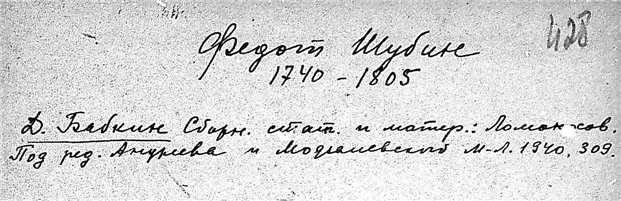 428
Федот Шубин
1740 - 1805
Д. Бабкин Сборн. стат. и матер.: Ломоносов.
Под ред. Андреева и Модзалевского М-Л. 1940, 309.